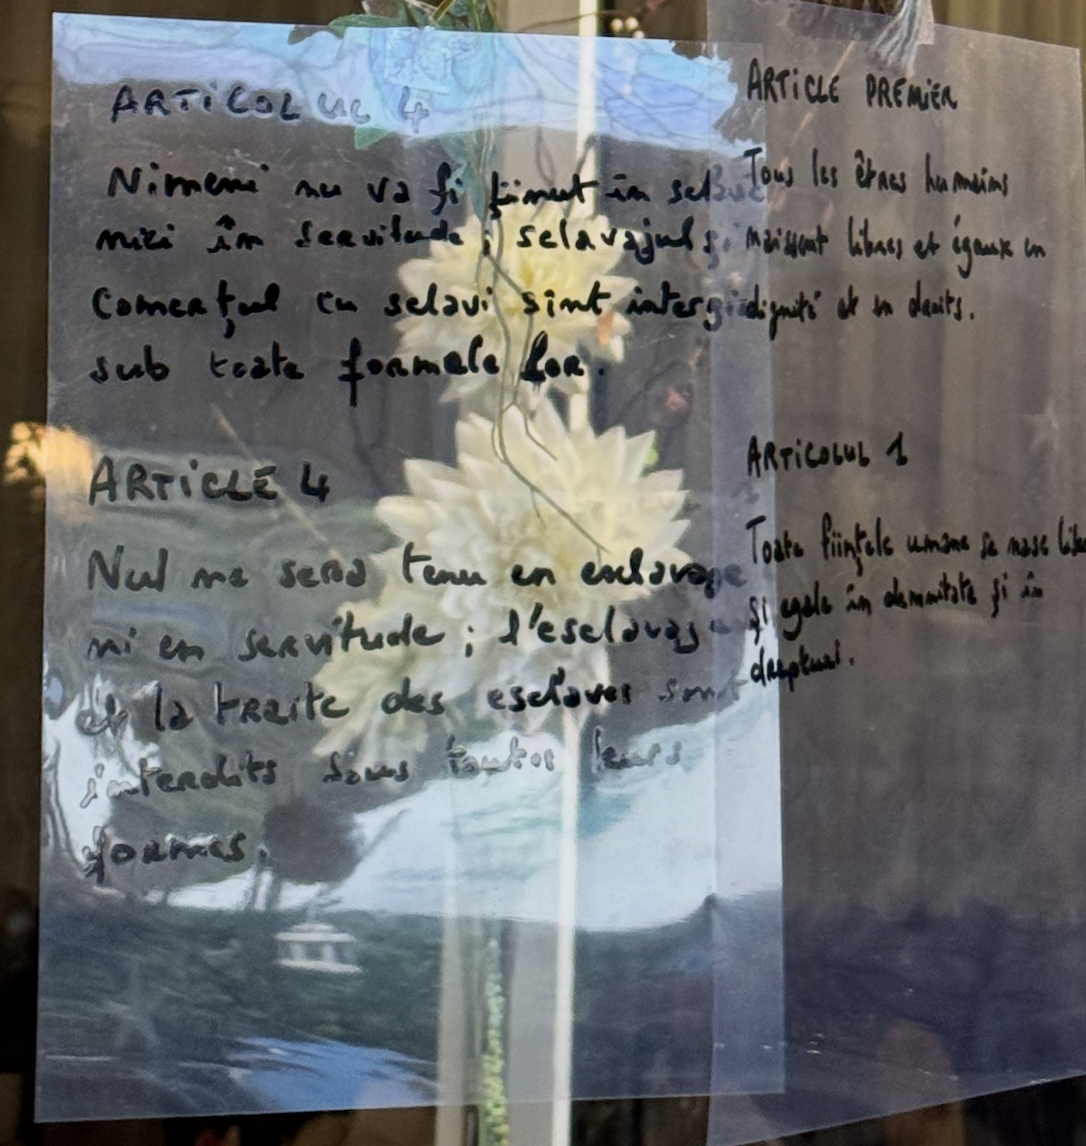 ARTICOLUL 4
Nimeni nu va fi ţinut în
nici în servitude; sclavajul şi
Comerţul cu sclavi sint
sub toate formele lor.
ARTICLE 4
Nul ne sera tenu en esclavage
ni en servitude ; l'esclavage
et la traite des esclaves sont
interdits sous toutes leurs
formes.
ARTICLE PREMIER
Tous les êtres humains
naissent libres et égaux en
dignité et en droits.
ARTICOLUL 1
Toate fiinţele umane se nasc
şi egale în demnitate şi în
drepturi.